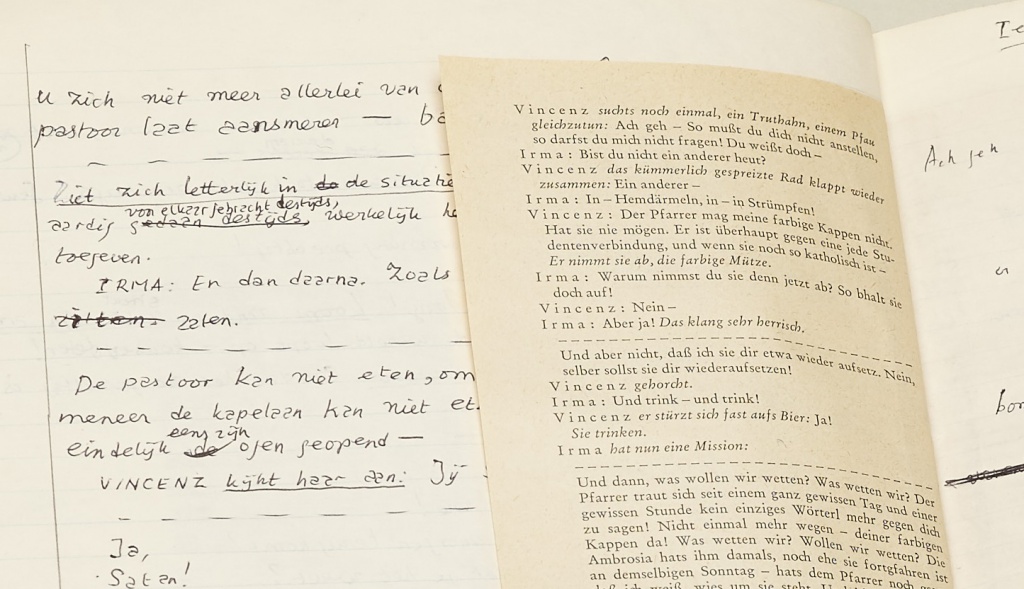 u zich niet meer allerlei van
pastoor laat aansmeren —
Ziet zich letterlijk in de de situatie
van elkaar gebracht destijds,
aardig gedaan destijds, werkelijk
toegeven.
IRMA: En dan daarna. Zoals
zitten. zaten.
De pastoor kan niet eten, om
meneer de kapelaan kan niet et
eens zijn
eindelijk de ogen geopend —
VINCENZ kijkt haar aan: Jij
Ja,
Satan!
Vincenz suchts noch einmal, ein Truthahn, einem Pfau
gleichzutun: Ach geh – So mußt du dich nicht anstellen,
so darfst du mich nicht fragen! Du weißt doch –
Irma: Bist du nicht ein anderer heut?
Vincenz das kümmerlich gespreizte Rad klappt wieder
zusammen: Ein anderer –
Irma: In – Hemdärmeln, in – in Strümpfen!
Vincenz: Der Pfarrer mag meine farbige Kappen nicht.
Hat sie nie mögen. Er ist überhaupt gegen eine jede Stu-
dentenverbindung, und wenn sie noch so katholisch ist –
Er nimmt sie ab, die farbige Mütze.
Irma: Warum nimmst du sie denn jetzt ab? So bhalt sie
doch auf!
Vincenz: Nein –
Irma: Aber ja! Das klang sehr herrisch.
Und aber nicht, daß ich sie dir etwa wieder aufsetz. Nein,
selber sollst sie dir wiederaufsetzen!
Vincenz gehorcht.
Irma: Und trink – und trink!
Vincenz er stürzt sich fast aufs Bier: Ja!
Sie trinken.
Irma hat nun eine Mission:
Und dann, was wollen wir wetten? Was wetten wir? Der
Pfarrer traut sich seit einem ganz gewissen Tag und einer
gewissen Stunde kein einziges Wörterl mehr gegen dich
zu sagen! Nicht einmal mehr wegen – deiner farbigen
Kappen da! Was wetten wir? Wollen wir wetten? Die
Ambrosia hats ihm damals, noch ehe sie fortgfahren ist
an demselbigen Sonntag – hats dem Pfarrer noch
daß ich weiß, wies um sie steht.
Ach geh